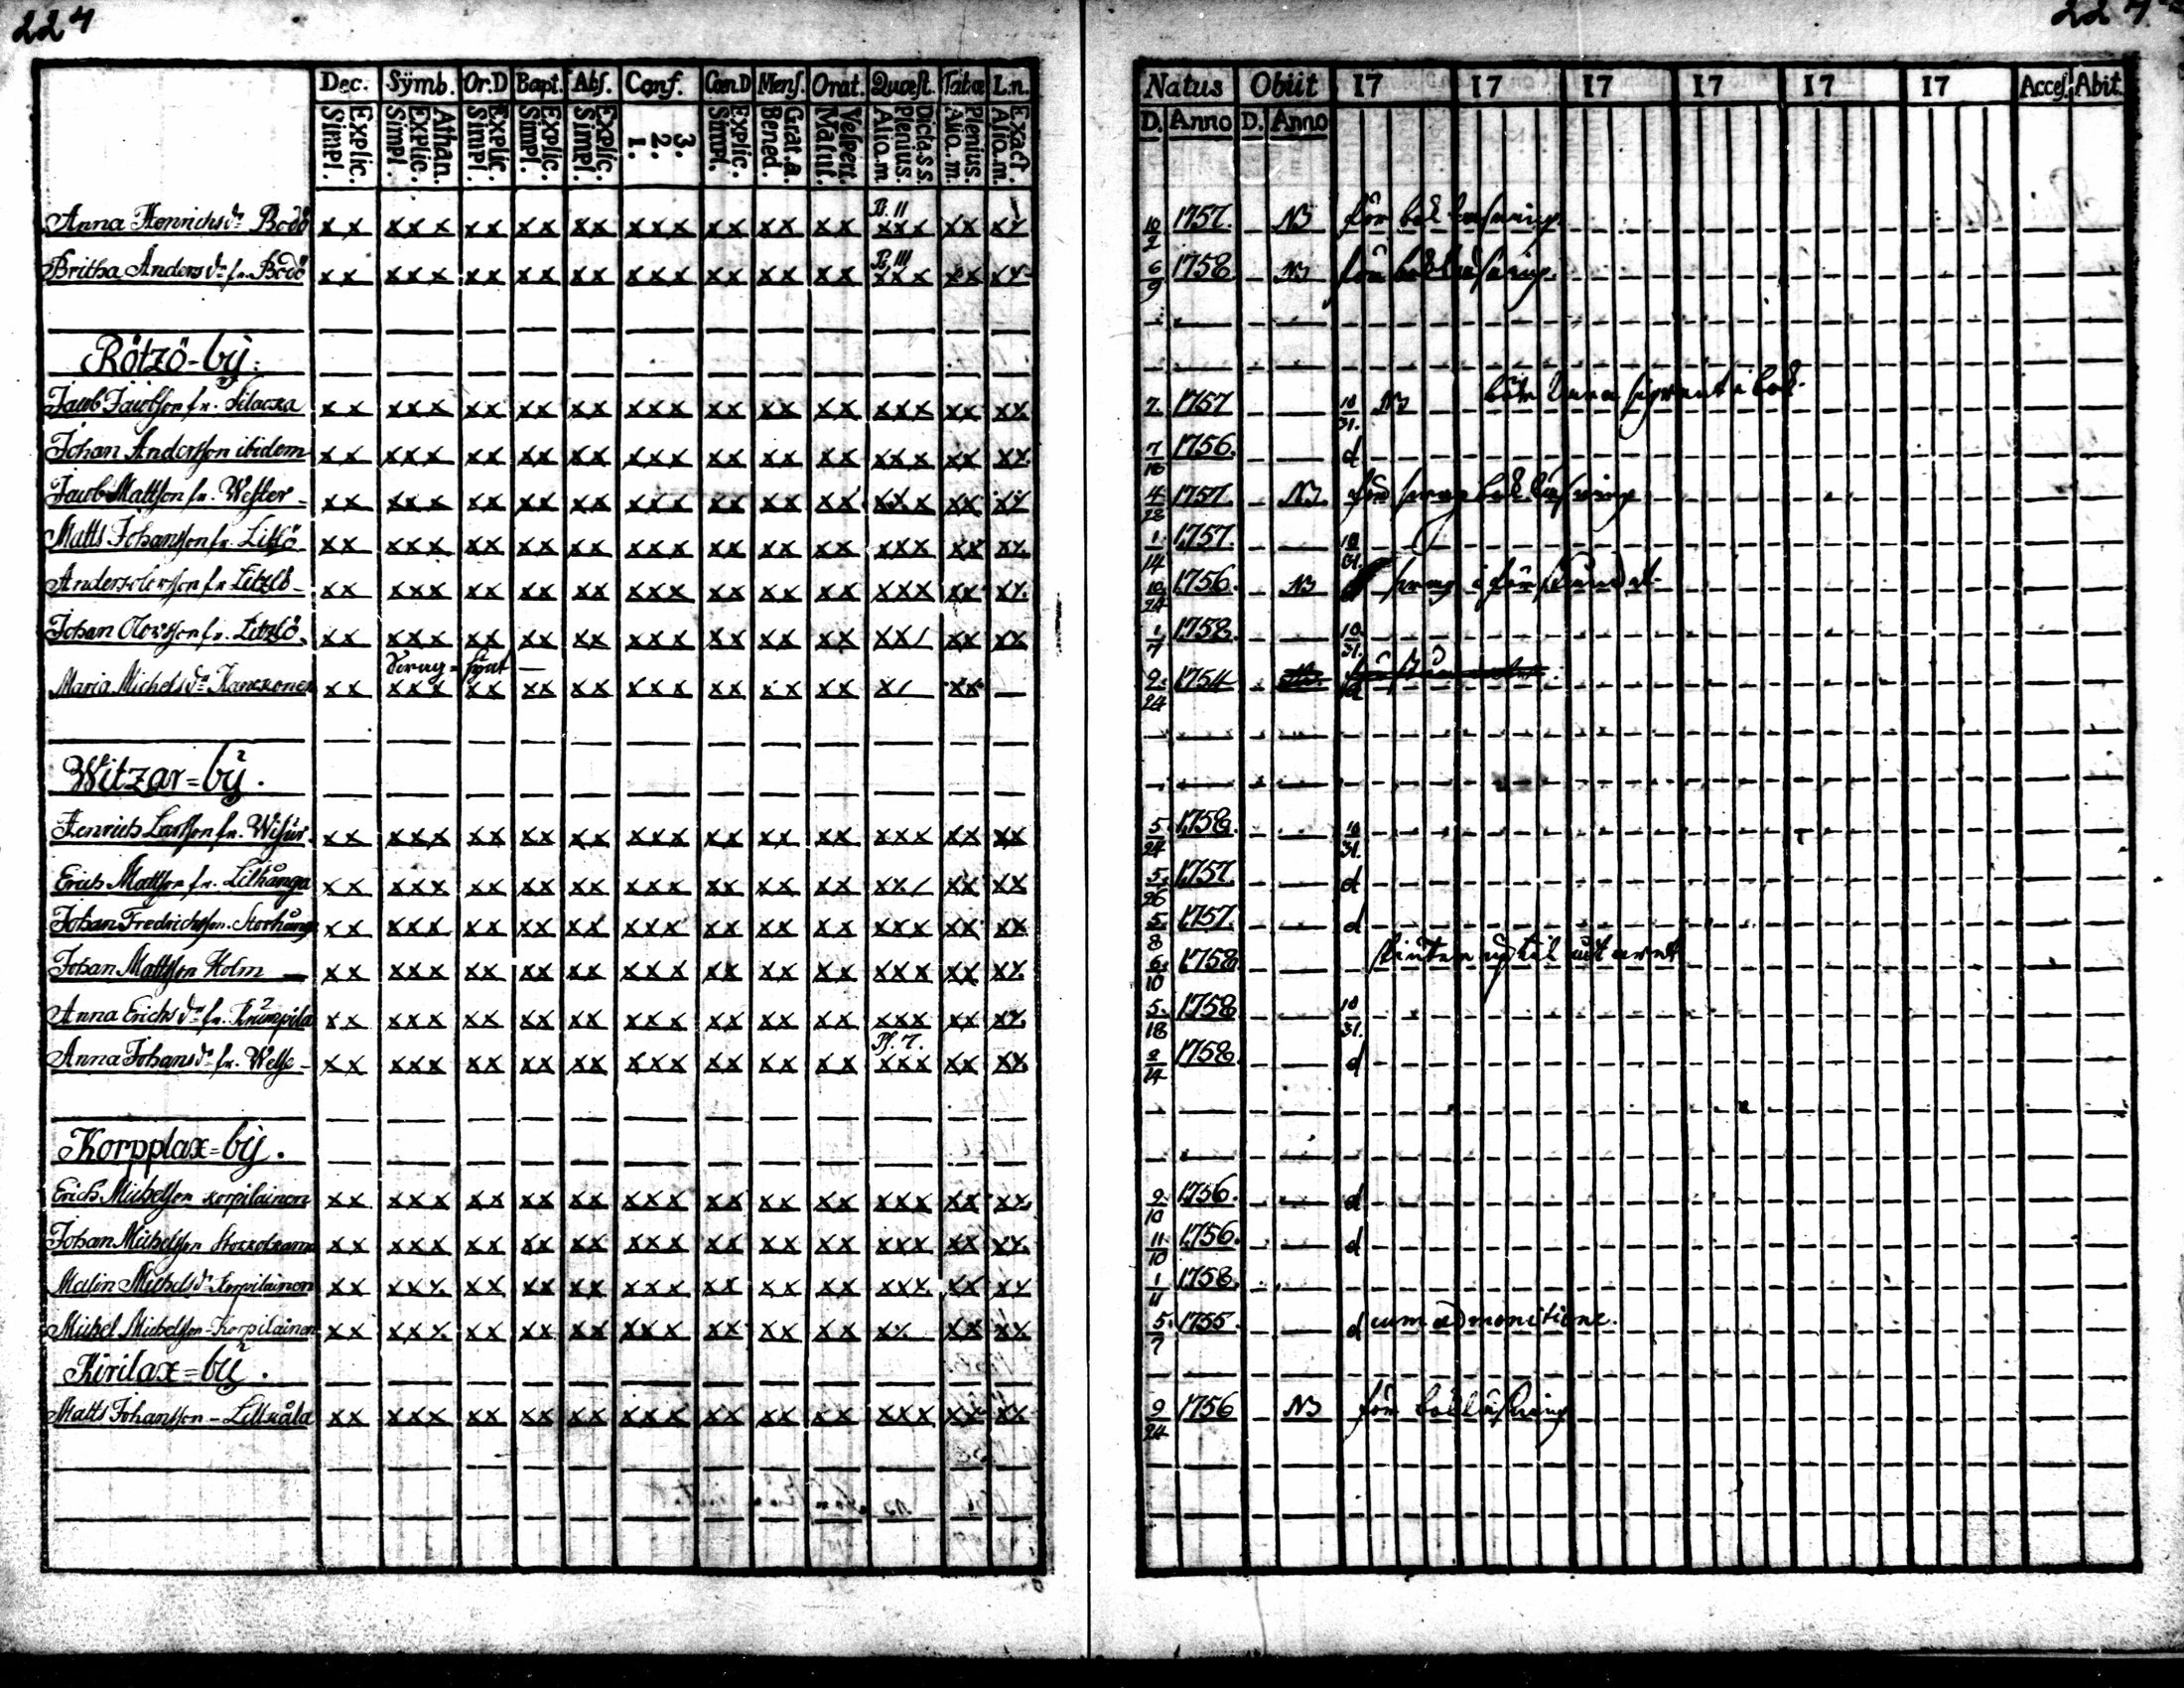 224
224
Dec. Sÿmb. Or.D Bapt. Abs. Conf. Con.D Mens. Orat. Quæst. Tab.œ L.n.
Explic. Simpl. Athan. Explic. Simpl. Explic. Simpl. Explic. Simpl. Explic. Simpl. 3. 2. 1. Explic. Simpl. Grat.a. Bened. Vespert. Matut. Dicta.s.s. Plenius. Alio.m. Plenius. Alio.m. Exact. Alio.m.
Natus Obiit 17 17 17 17 17 17 Acces. Abit.
D. Anno D. Anno
Anna Henrichsdr Bodö xx xxx xx xx xx xxx xx xx xx B. II xxx xx xx 10/2 1757. NB för bokläsning.
Britha Andersdr fr. Bodö xx xxx xx xx xx xxx xx xx xx B. III xxx xx xx 6/9 1758. NB för bokläsning.
Rötzö-bÿ:
Jacob Jacobsson fr. xx xxx xx xx xx xxx xx xx xx xxx xx xx 7. 1757 10/31. NB i bok.
Johan Andersson ibidem xx xxx xx xx xx xxx xx xx xx xxx xx xx 7/18 1756. d
Jacob Mattsson fr. Wester- xx xxx xx xx xx xxx xx xx xx xxx xx xx 4/28 1757. NB för svag bokläsning
Matts Johansson fr. Litlö xx xxx xx xx xx xxx xx xx xx xxx xx xx 1/14 1757. 10/31.
Anders Olofsson fr. Litzlö- xx xxx xx xx xx xxx xx xx xx xxx xx xx 10/24 1756. NB svag i förståndet.
Johan Olofsson fr. Litzlö. xx xxx xx xx xx xxx xx xx xx xx/ xx xx 1/7 1758. 10/31.
Maria Michelsdr xx xxx xx xx xx xxx xx xx xx x/ xx 9/24 1754 d
Witzar=bÿ.
Henrich Larsson fr. xx xxx xx xx xx xxx xx xx xx xxx xx xx 5/24 1758. 10/31.
Erich Mattsson fr. Lillhånga xx xxx xx xx xx xxx xx xx xx xx/ xx xx 5/26 1757. d
Johan Fredrichsson. Storhånga xx xxx xx xx xx xxx xx xx xx xxx xx xx 5/8 1757. d
Johan Mattsson Holm xx xxx xx xx xx xxx xx xx xx xxx xx xx 6/10 1758
Anna Erichsdr fr. Krumpila xx xxx xx xx xx xxx xx xx xx xxx xx xx 5/18 1758 10/31.
Anna Johansdr fr. xx xxx xx xx xx xxx xx xx xx Ps. 7. xxx xx xx 2/14 1758. d
Korpplax=bÿ.
Erich Michelsson korpilainen xx xxx xx xx xx xxx xx xx xx xxx xx xx 9/10 1756. d
Johan Michelsson xx xxx xx xx xx xxx xx xx xx xxx xx xx 11/10 1756. d
Malin Michelsdr Korpilainen xx xxx xx xx xx xxx xx xx xx xxx xx xx 1/11 1758.
Michel Michelsson-Korpilainen xx xxx xx xx xx xxx xx xx xx xx xx xx 5/7 1755. d cum admonitione.
Kirilax=bÿ.
Matts Johansson - Lillkåla xx xxx xx xx xx xxx xx xx xx xxx xx xx 9/24 1756 NB för bokläsning